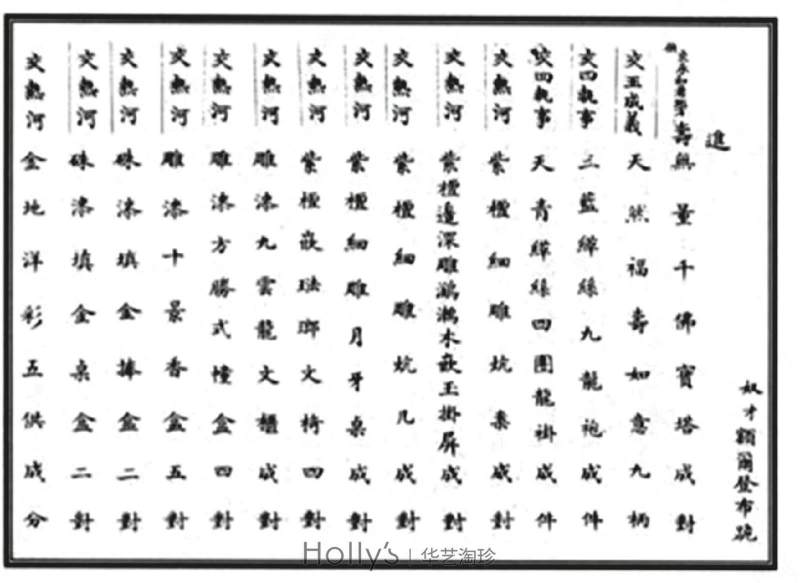 奴才額爾登布跪
進
壽無量千佛寶塔成對
交玉成義 天然福壽如意九柄
交四執事 三藍緙絲九龍袍成件
交四執事 天青緙絲四團龍褂成件
交熱河 紫檀細雕炕案成對
交熱河 紫檀邊深雕鸂鶒木嵌玉掛屏成對
交熱河 紫檀細雕炕几成對
交熱河 紫檀細雕月牙桌成對
交熱河 紫檀嵌琺瑯文椅四對
交熱河 雕漆九雲龍文櫃成對
交熱河 雕漆方勝式幢盒四對
交熱河 雕漆十景香盒五對
交熱河 硃漆填金捧盒二對
交熱河 硃漆填金桌盒二對
交熱河 金地洋彩五供成分
Holly's | 华艺淘珍